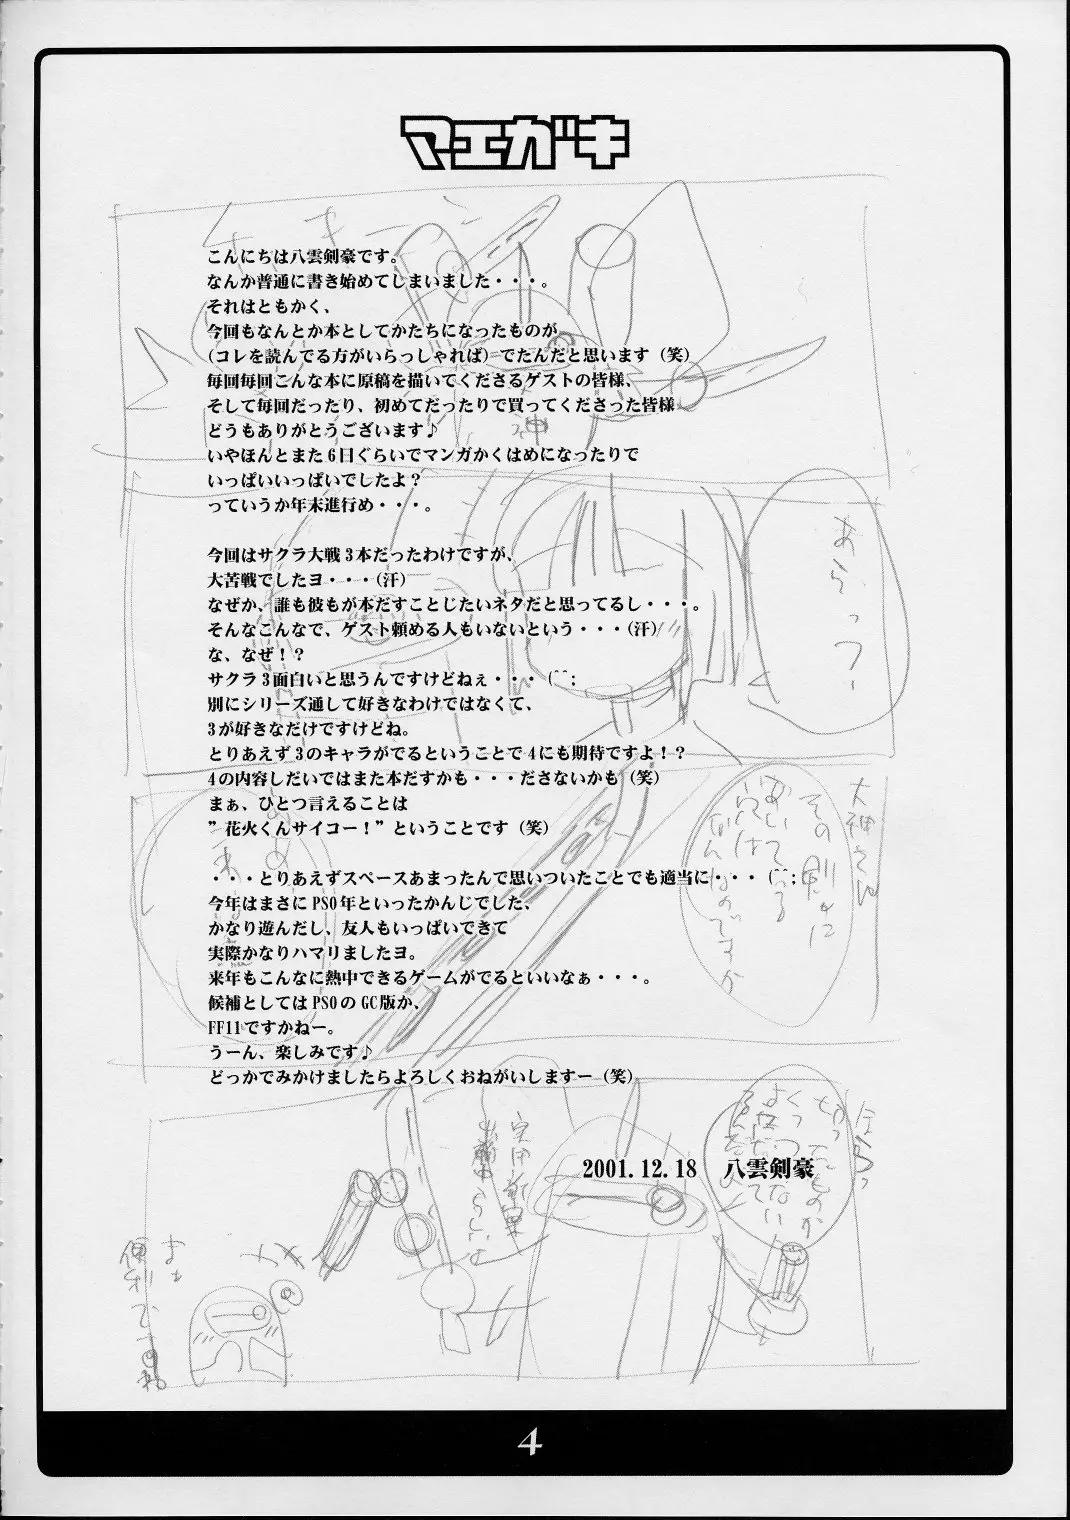 マエガキ
こんにちは八雲剣豪です。
なんか普通に書き始めてしまいました・・・。
それはともかく、
今回もなんとか本としてかたちになったものが
(コレを読んでる方がいらっしゃれば)でたんだと思います(笑)
毎回毎回こんな本に原稿を描いてくださるゲストの皆様、
そして毎回だったり、初めてだったりで買ってくださった皆様
どうもありがとうございます♪
いやほんとまた6日ぐらいでマンガかくはめになったりで
いっぱいいっぱいでしたよ？
っていうか年末進行め・・・。
今回はサクラ大戦3本だったわけですが、
大苦戦でしたヨ・・・(汗)
なぜか、誰も彼もが本だすことじたいネタだと思ってるし・・・。
そんなこんなで、ゲスト頼める人もいないという・・・(汗)
な、なぜ！？
サクラ3面白いと思うんですけどねぇ・・・(^^;
別にシリーズ通して好きなわけではなくて、
3が好きなだけですけどね。
とりあえず3のキャラがでるということで4にも期待ですよ！？
4の内容しだいではまた本だすかも・・・ださないかも(笑)
まぁ、ひとつ言えることは
”花火くんサイコー！”ということです(笑)
・・・とりあえずスペースあまったんで思いついたことでも適当に・・・(^^;
今年はまさにPSO年といったかんじでした、
かなり遊んだし、友人もいっぱいできて
実際かなりハマリましたヨ。
来年もこんなに熱中できるゲームがでるといいなぁ・・・。
候補としてはPSOのGC版か、
FF11ですかねー。
うーん、楽しみです♪
どっかでみかけましたらよろしくおねがいしますー(笑)
2001.12.18 八雲剣豪
あらっ
大神さん
その剣に
あいてる
穴は
なんなのですか
まぁ
便利ですね
4